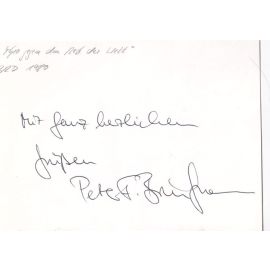 gegen den Rest der Welt"
BRD 1980
Mit ganz herzlichen
Grüßen
Peter F. Bringmann